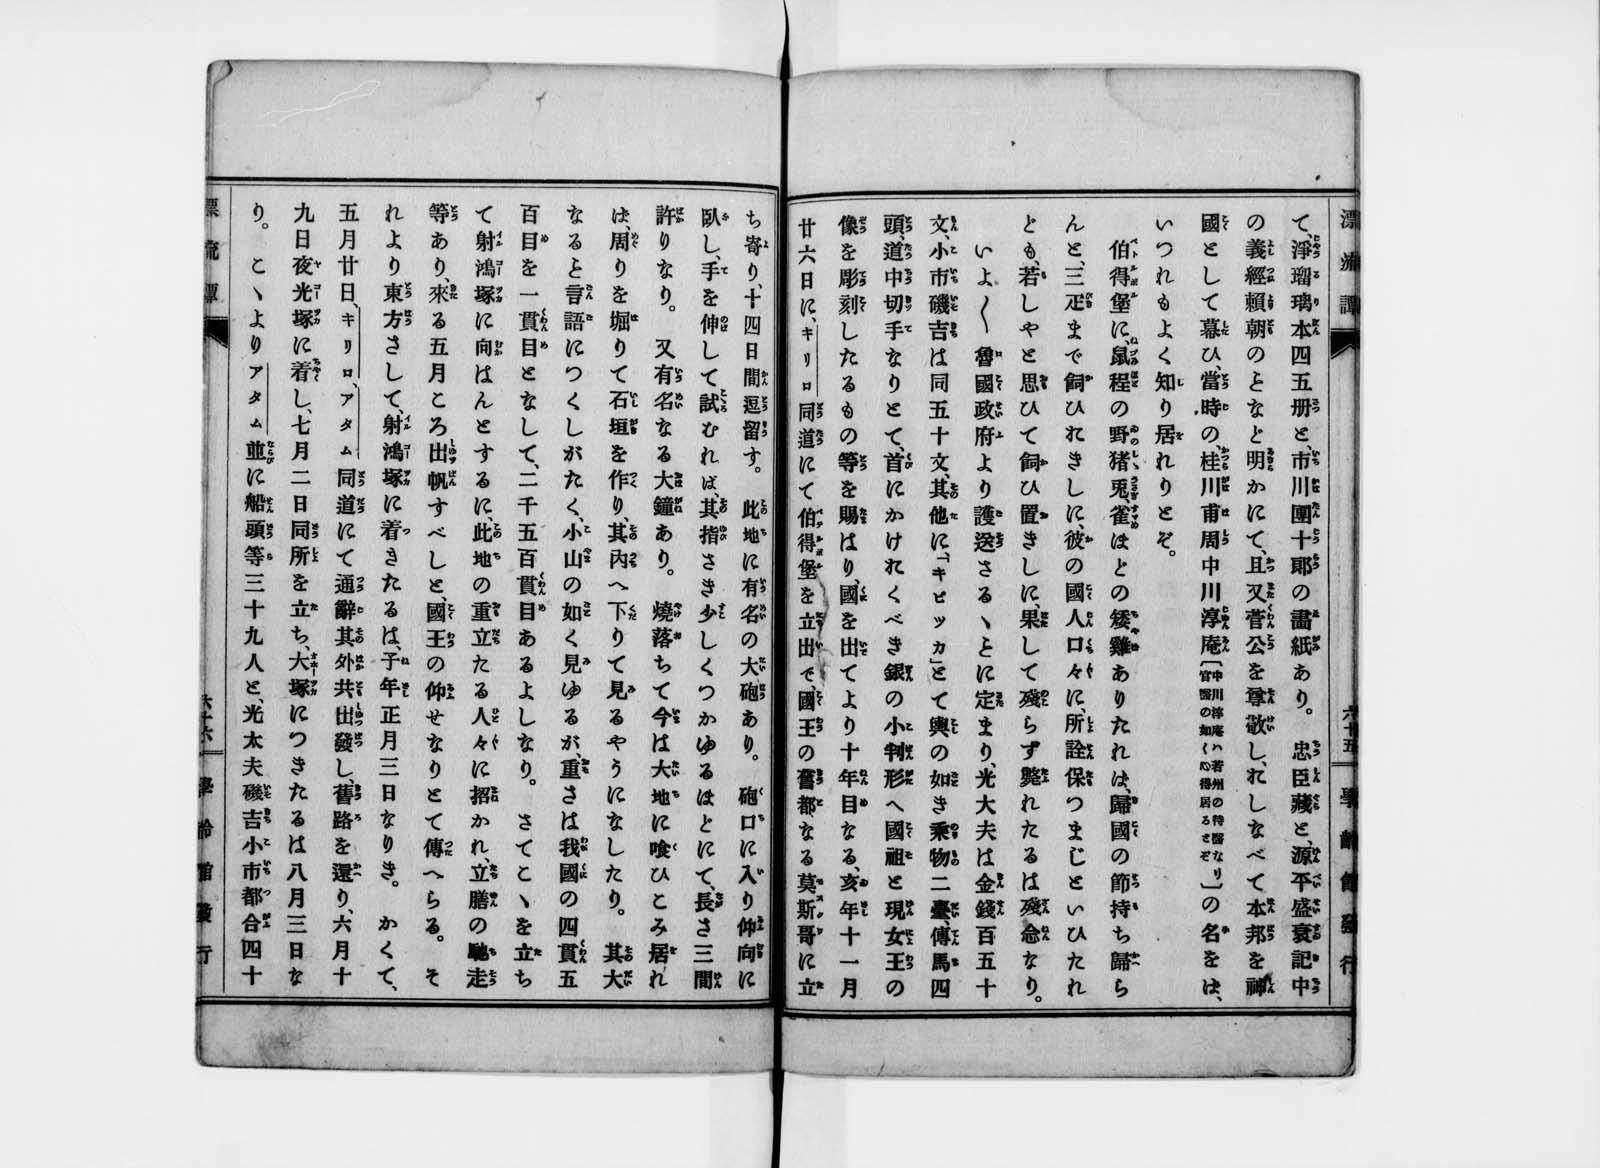 漂流譚
六十五
學齡館發行
て、淨瑠璃本四五册と、市川團十郞の畵紙あり。忠臣藏と、源平盛衰記中
の義經賴朝のとなど明かにて、且又菅公を尊敬し、れしなべて本邦を神
國として慕ひ、當時の、桂川甫周中川淳庵〔中川淳庵ハ若州の侍醫なり官醫の如く心得居るさぞ〕の名をは、
いつれもよく知り居れりとぞ。
伯得堡に、鼠程の野猪兎、雀ほとの矮雞ありたれは、歸國の節持ち歸ら
んと、三疋まで飼ひれきしに、彼の國人口々に、所詮保つまじといひたれ
とも、若しやと思ひて飼ひ置きしに、果して殘らず斃れたるは殘念なり。
いよ〱魯國政府より護送さるゝとに定まり、光大夫は金錢百五十
文、小市磯吉は同五十文、其他に「キビツカ」とて輿の如き乘物二臺、傳馬四
頭、道中切手なりとて、首にかけれくべき銀の小判形へ國祖と現女王の
像を彫刻したるもの等を賜はり、國を出てより十年目なる、亥年十一月
廿六日に、キリロ同道にて伯得堡を立出で、國王の舊都なる莫斯哥に立
ち寄り、十四日間逗留す。此地に有名の大砲あり。砲口に入り仲向に
臥し、手を伸して試むれば、其指さき少しくつかゆるほとにて、長さ三間
許りなり。又有名なる大鐘あり。燒落ちて今は大地に喰ひこみ居れ
は、周りを堀りて石垣を作り、其內へ下りて見るやうになしたり。其大
なると言語につくしがたく、小山の如く見ゆるが、重さは我國の四貫五
百目を一貫目となして、二千五百貫目あるよしなり。さてこゝを立ち
て射鴻塚に向はんとするに、此地の重立たる人々に招かれ、立膳の馳走
等あり、來る五月ころ出帆すべしと、國王の仰せなりとて傳へらる。そ
れより東方さして、射鴻塚に着きたるは、子年正月三日なりき。かくて、
五月廿日、キリロ、アタム同道にて通辭其外共出發し、舊路を還り、六月十
九日夜光塚に着し、七月二日同所を立ち、大塚につきたるは八月三日な
り。こゝよりアタム並に船頭等三十九人と、光太夫磯吉小市都合四十
漂流譚
六十六
學齡館發行